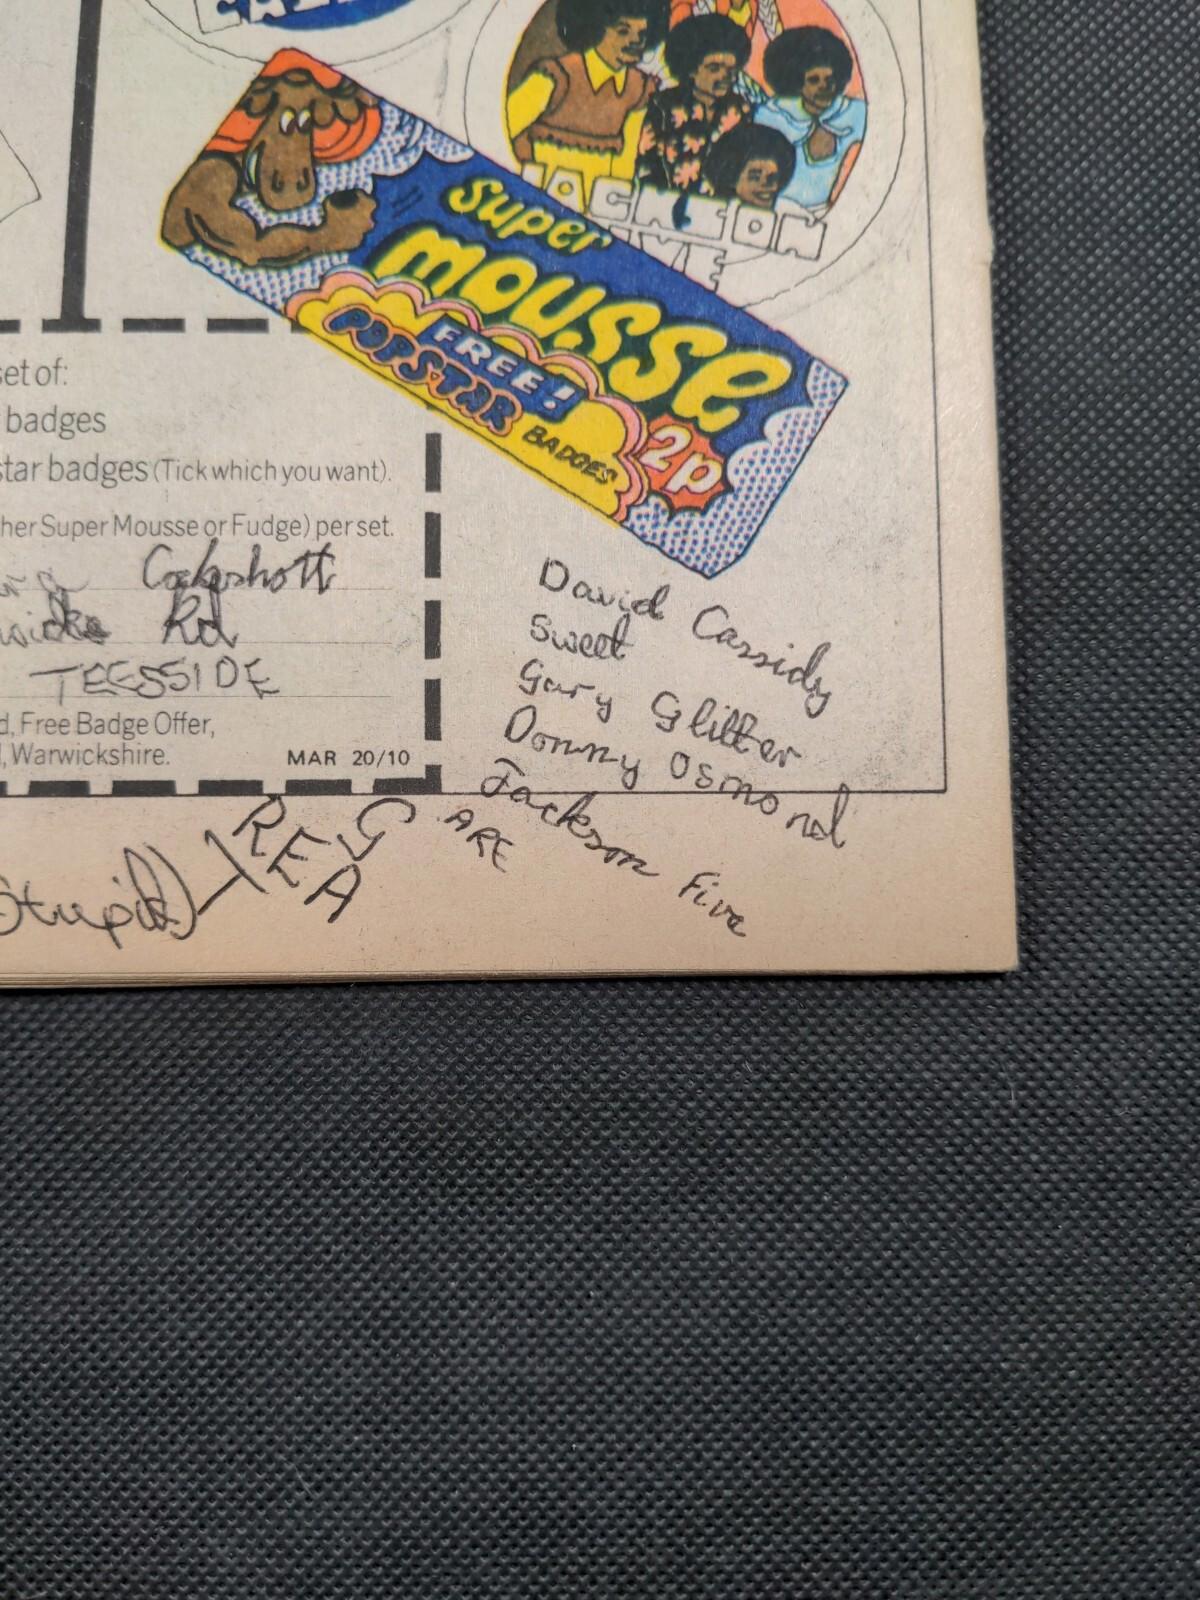 JACKSON
FIVE
Super
mousse
FREE!
POPSTAR
BADGES
2p
set of:
badges
star badges (Tick which you want).
her Super Mousse or Fudge) per set.
Cockshott
Rd
TEESSIDE
d, Free Badge Offer,
l, Warwickshire.
MAR 20/10
David Cassidy
Sweet
Gary Glitter
Donny Osmond
Jackson Five
ARE
GREA
Stupid)